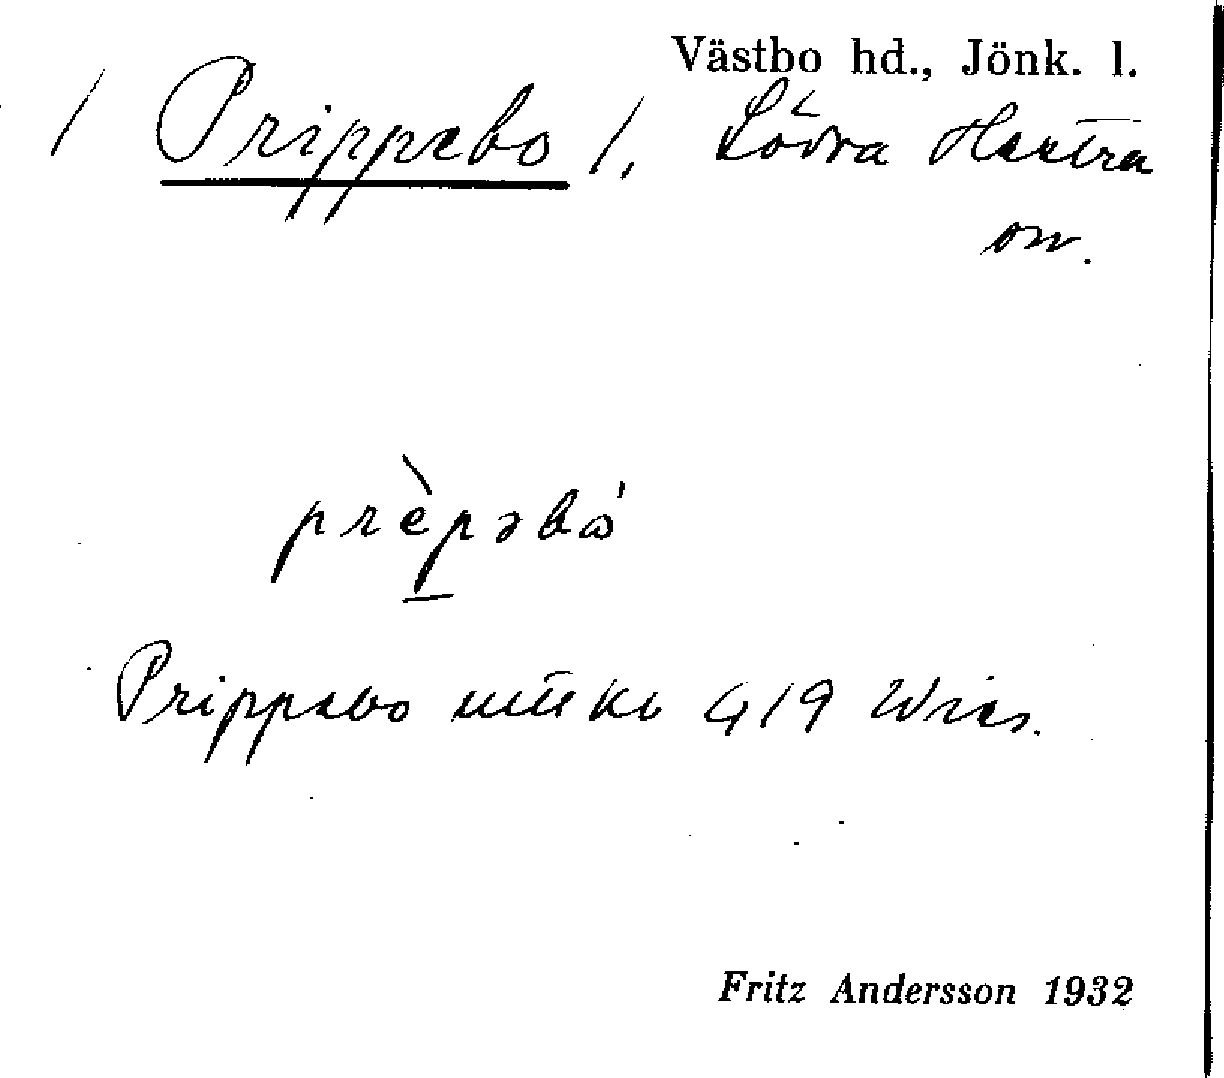 Västbo hd., Jönk. l.
/ Prippebo /, Södra Hestra
sn.
prèpəbω'
Prippebo 419 Wies.
Fritz Andersson 1932